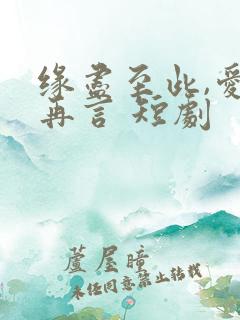 缘尽至此,爱
再言 短劇
蘆屋瞳
未经同意禁止转载